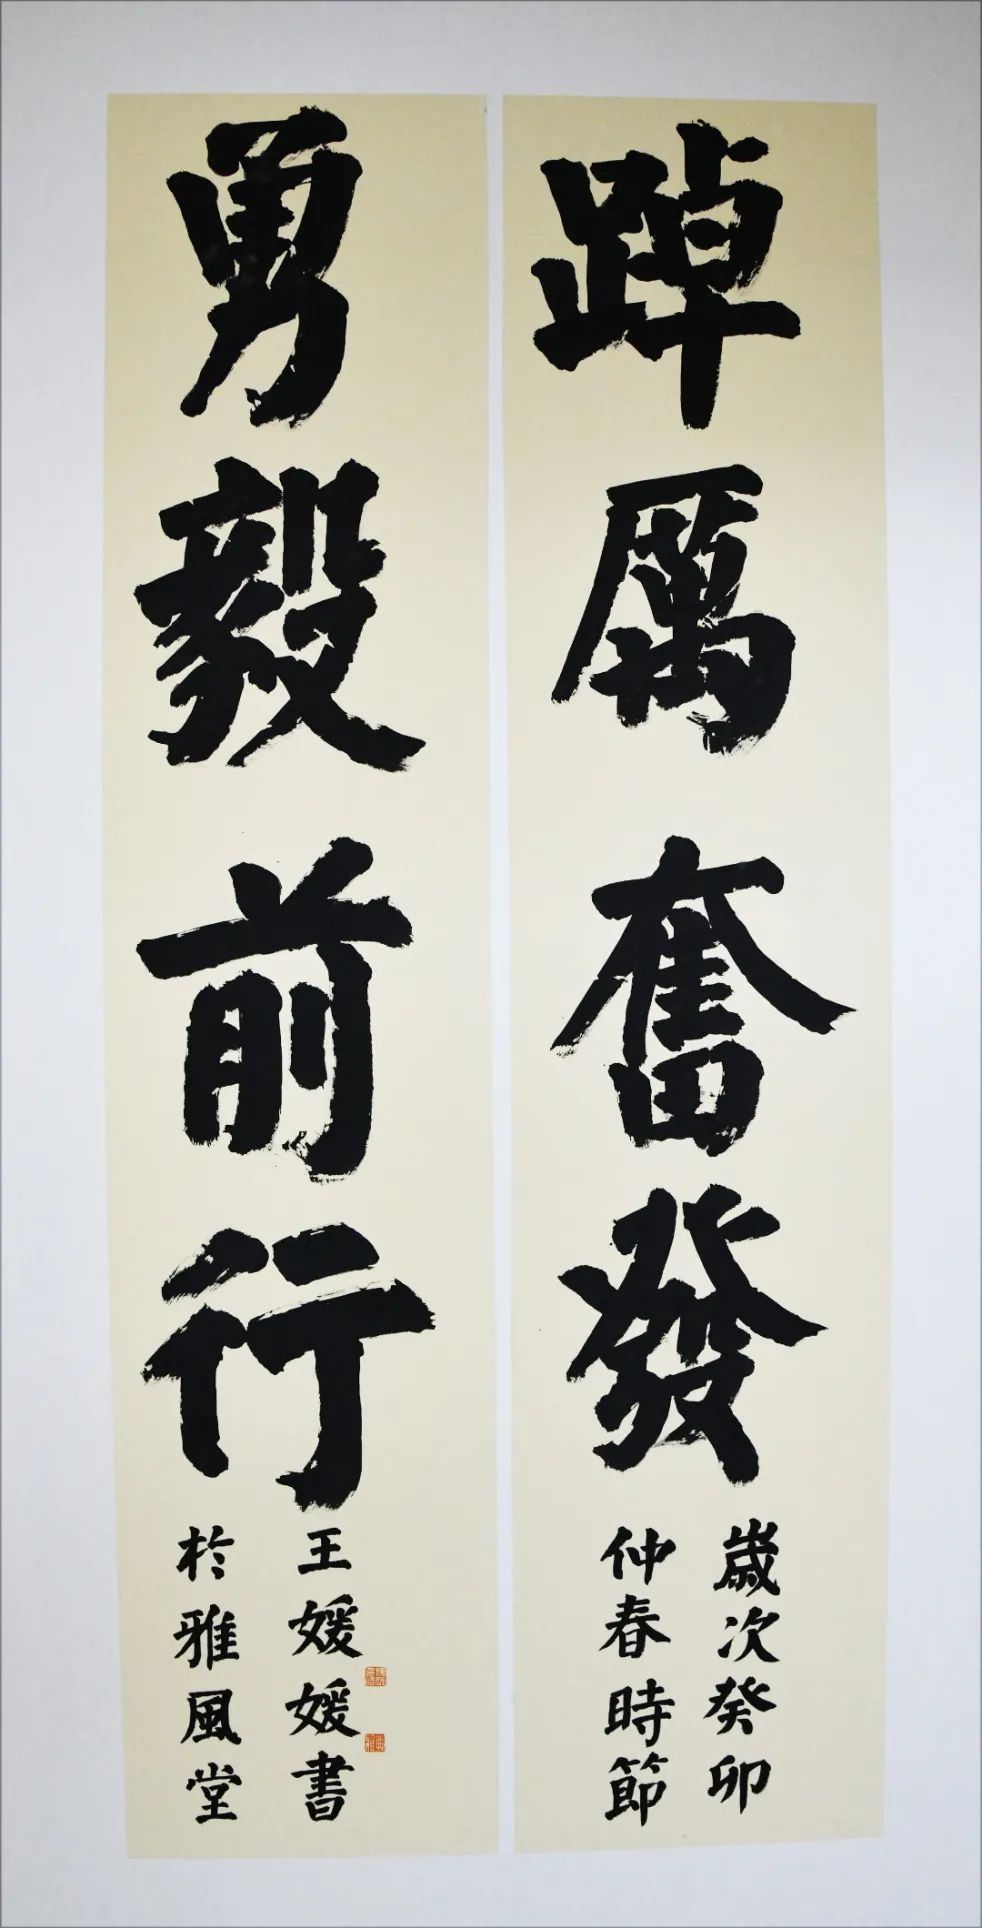 踔厲奮發
歲次癸卯
仲春時節
勇毅前行
王媛媛書
於雅風堂